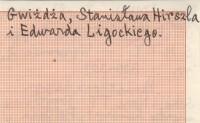 Gwiżdża, Stanisława Hirszla
i Edwarda Ligockiego.